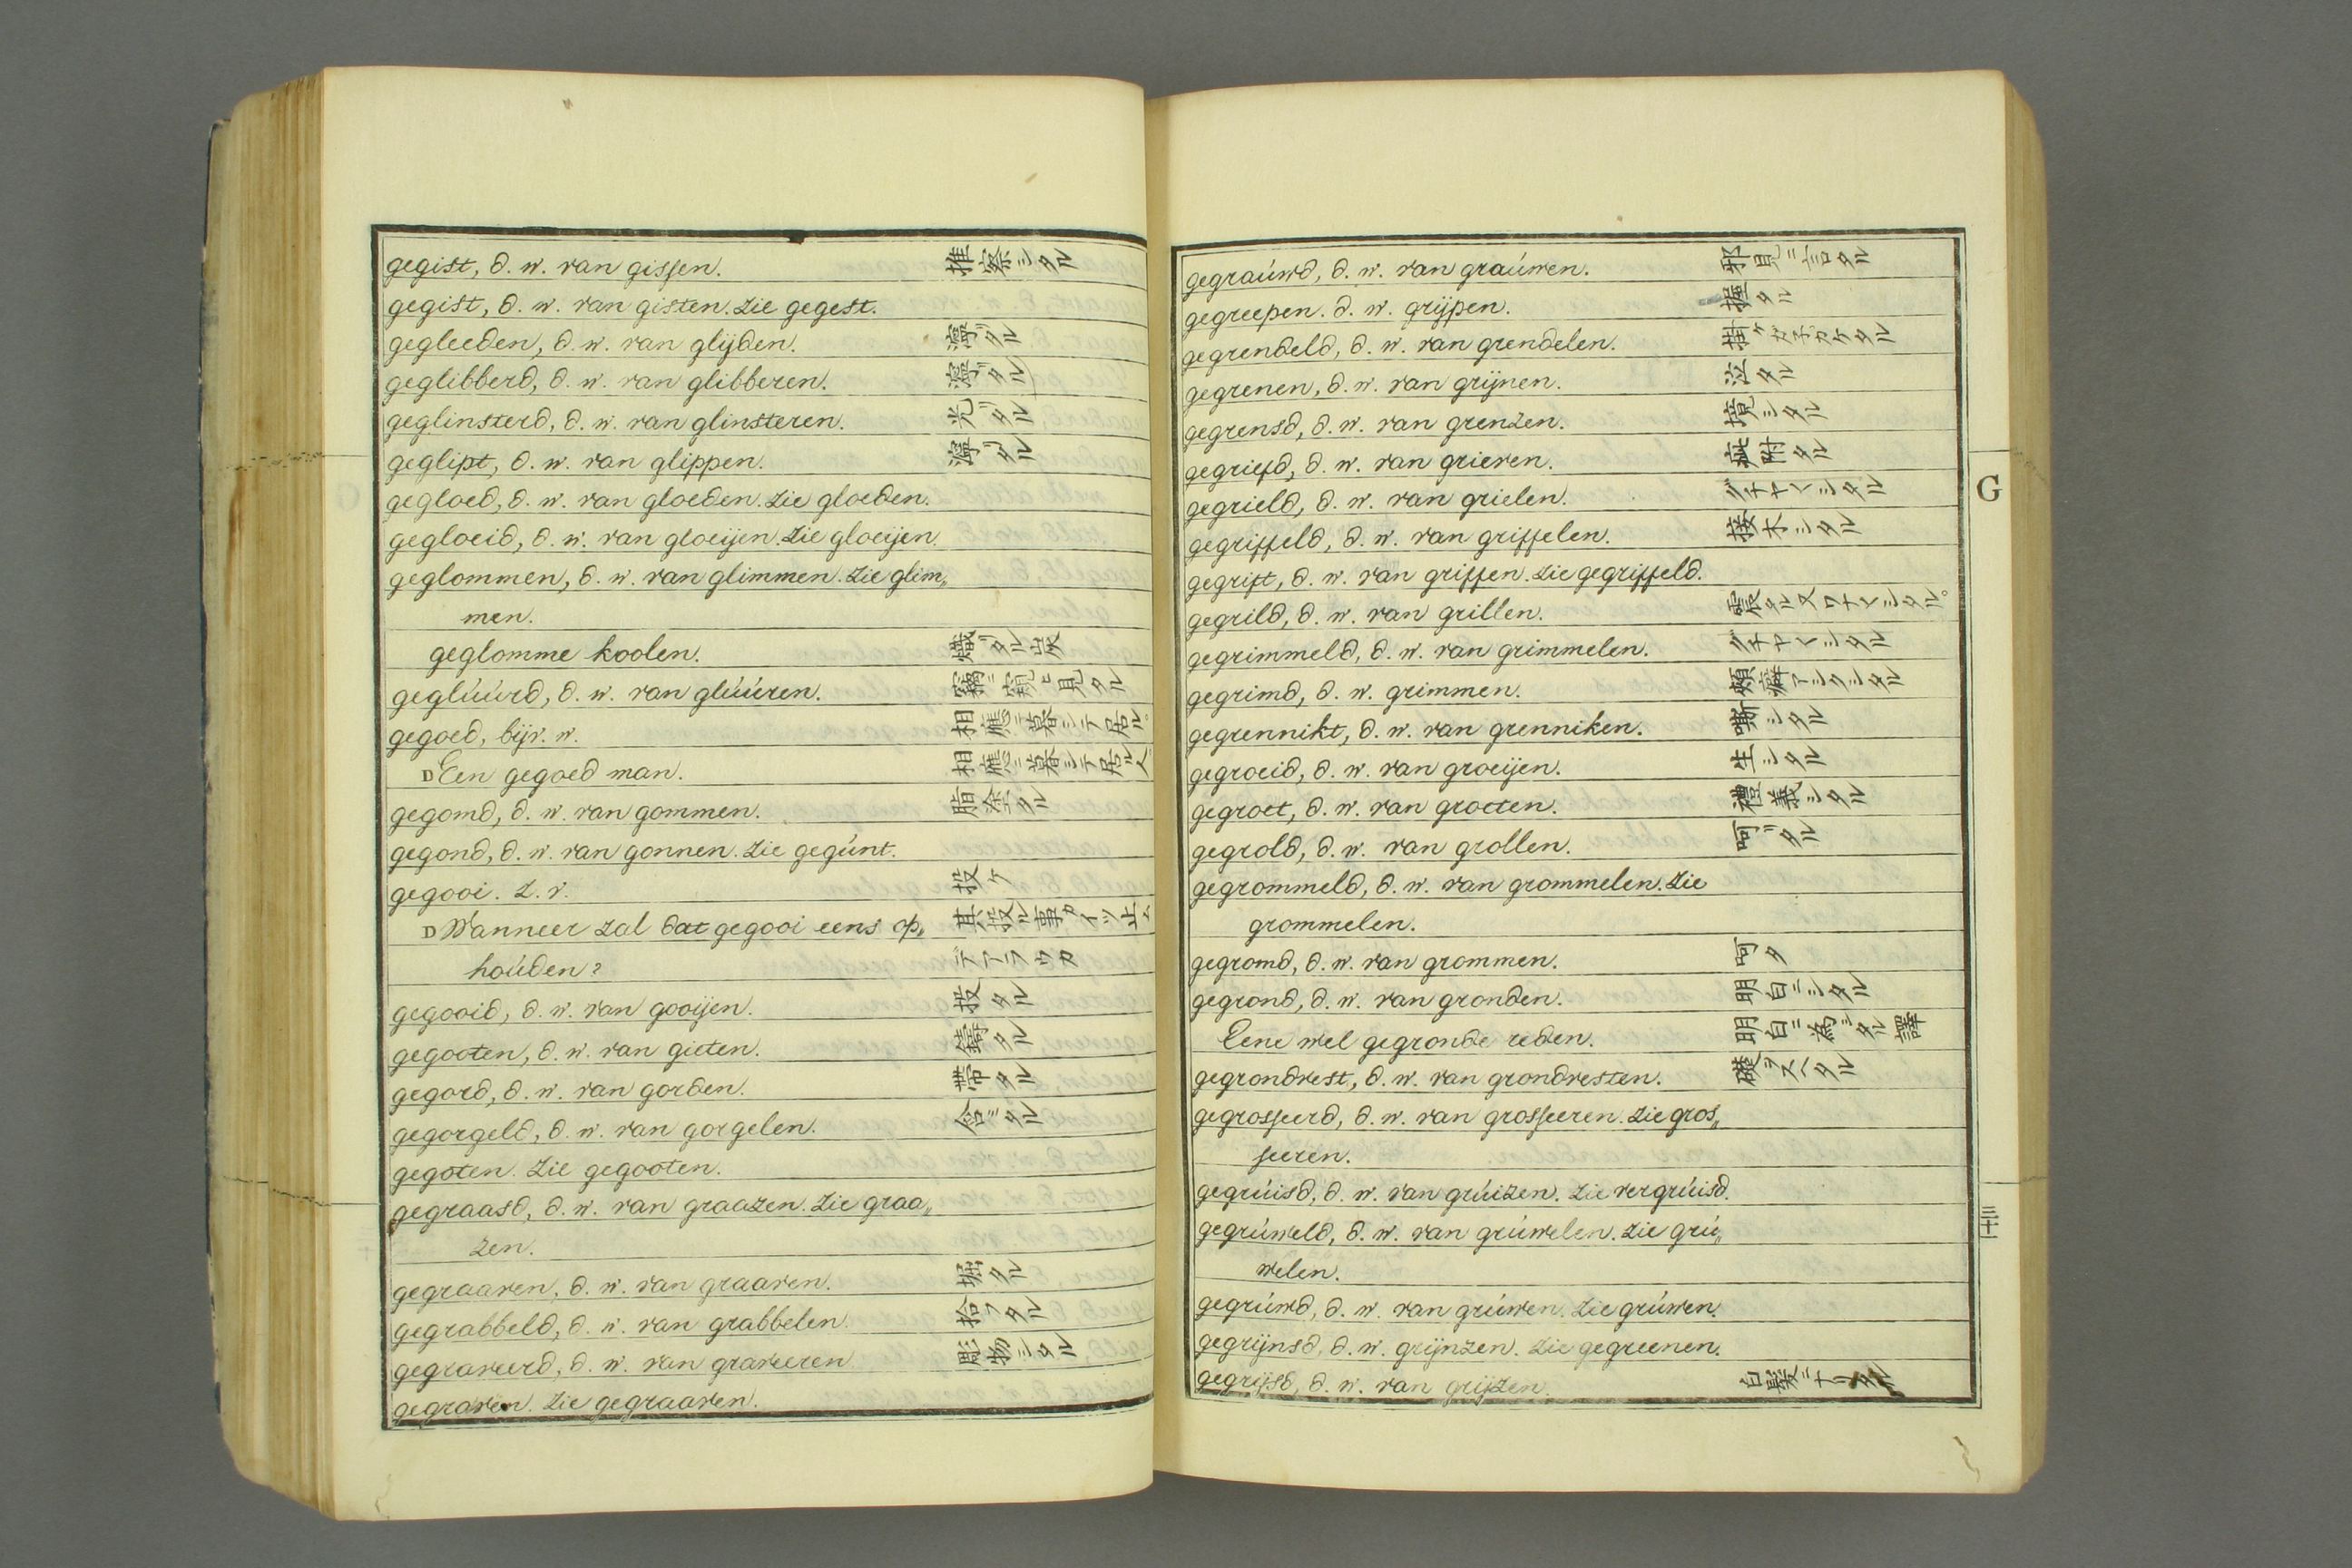 gegist, d. w. van gissen. 推察シタル
gegist, d. w. van gisten. Zie gegest.
gegleeden, d. w. van glijden. 濘タル
geglibberd, d. w. van glibberen. 濘タル
geglinsterd, d. w. van glinsteren. 光タル
geglipt, d. w. van glippen. 濘タル
gegloed, d. w. van gloeden. Zie gloeden.
gegloeid, d. w. van gloeijen. Zie gloeijen.
geglommen, d. w. van glimmen. Zie glim„
men.
geglomme koolen. 熾タル炭
geglúúrd, d. w. van glúúren. 竊ニ窺ヒ見タル
gegoed, bijv. w. 相應ニ暮シテ居ル
D Een gegoed man. 相應ニ暮シテ居ル人
gegomd, d. w. van gommen. 脂塗タル
gegond, d. w. van gonnen. Zie gegúnt.
gegooi. Z. v. 投ケ
D Wanneer zal dat gegooi eens op„ 其投ル事タイツ止ム
hoúden? デアラウカ
gegooid, d. w. van gooijen. 投タル
gegooten, d. w. van gieten. 鑄タル
gegord, d. w. van gorden. 帯タル
gegorgeld, d. w. van gorgelen. 含ミタル
gegoten. Zie gegooten.
gegraasd, d. w. van graazen. Zie graa„
zen.
gegraaven, d. w. van graaven. 堀タル
gegrabbeld, d. w. van grabbelen. 拾フタル
gegraveerd, d. w. van graveeren 彫物シタル
gegraven. Zie gegraaven.
gegraúwd, d. w. van graúwen. 邪見ニ言タル
gegreepen. d. w. grijpen. 握タル
gegrendeld, d. w. van grendelen. 掛ケガネカケタル
gegrenen, d. w. van grijnen. 泣タル
gegrensd, d. w. van grenzen. 境シタル
gegriefd, d. w. van grieven. 疵附タル
gegrield, d. w. van grielen. グチヤ〱シタル
gegriffeld, d. w. van griffelen. 接木シタル
gegrift, d. w. van griffen. Zie gegriffeld.
gegrild, d. w. van grillen. 震タル又ワナ〱シタル。
gegrimmeld, d. w. van grimmelen. グチヤ〱シタル
gegrimd, d. w. grimmen. 頬癖アシクシタル
gegrennikt, d. w. van grenniken. 嘶シタル
gegroeid, d. w. van groeijen. 生シタル
gegroet, d. w. van groeten. 禮義シタル
gegrold, d. w. van grollen. 呵タル
gegrommeld, d. w. van grommelen. Zie
grommelen.
gegromd, d. w. van grommen. 呵タ
gegrond, d. w. van gronden. 明白ニシタル
Eene wel gegronde reden. 明白ニ為シタル譯
gegrondvest, d. w. van grondvesten. 礎ヲスヘタル
gegrosseerd, d. w. van grosseeren. Zie gros„
seeren.
gegrúisd, d. w. van grúizen. Zie vergrúisd.
gegrúweld, d. w. van grúwelen. Zie grú„
welen.
gegrúwd, d. w. van grúwen. Zie grúwen.
gegrijnsd, d. w. grijnzen. Zie gegreenen.
gegrijsd, d. w. van grijzen. 白髪ニナリタル
G
三十